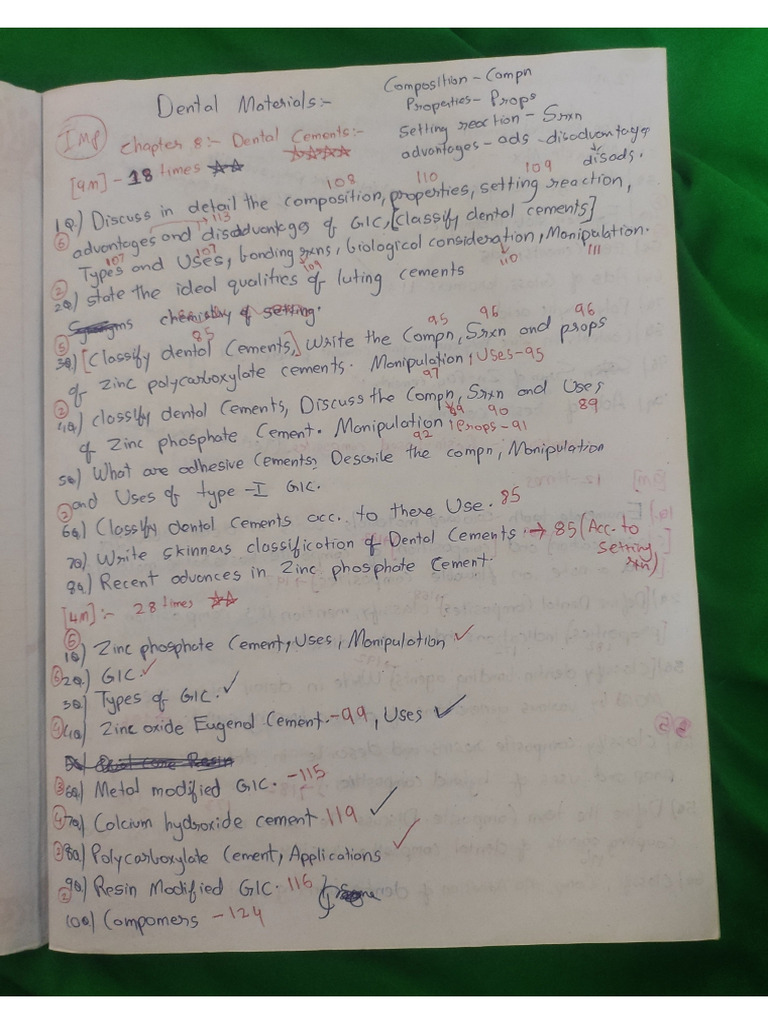 Dental Materials:-
Composition - Compn
Properties - Props
Setting reaction - Srxn
advantages - ads - disadvantages
disads.
IMP
Chapter 8:- Dental Cements:-
[9m] - 18 times
108 110 109
1Q.) Discuss in detail the composition, properties, setting reaction,
113
⑥ advantages and disadvantages of GIC, [classify dental cements]
Types and Uses, bonding rxns, biological consideration, Manipulation.
107 107 109 110 111
② 2Q) State the ideal qualities of luting cements
chemistry of setting.
85 95 96 96
⑤ 3Q) [Classify dental Cements,] Write the Compn, Srxn and props
of Zinc polycarboxylate cements. Manipulation, Uses-95
97
② 4Q) Classify dental Cements, Discuss the Compn, Srxn and Uses
89 90 89
of Zinc phosphate Cement. Manipulation, Props-91
92
5Q) What are adhesive Cements? Describe the compn, Manipulation
and Uses of type -I GIC.
② 6Q) Classify dental Cements acc. to there Use. 85
7Q) Write skinners classification of Dental Cements → 85 (Acc. to Setting rxn)
8Q) Recent advances in Zinc phosphate Cement.
[4m] :- 28 times
⑤ 1Q) Zinc phosphate Cement, Uses, Manipulation ✓
⑥ 2Q) GIC. ✓
3Q) Types of GIC. ✓
④ 4Q) Zinc oxide Eugenol Cement. -99, Uses ✓
③ 6Q) Metal modified GIC. -115
④ 7Q) Calcium hydroxide cement 119 ✓
③ 8Q) Polycarboxylate Cement, Applications ✓
9Q) Resin Modified GIC. 116
② 10Q) Compomers -124